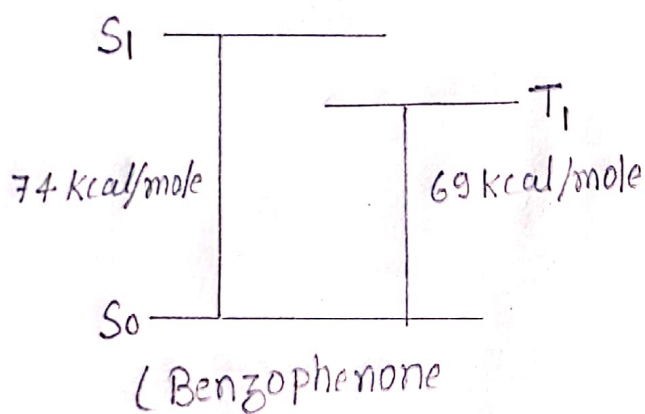 S1
T1
74 Kcal/mole
69 Kcal/mole
S0
( Benzophenone